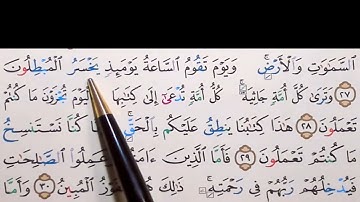 السَّمَٰوَٰتِ وَالْأَرْضِ ۚ وَيَوْمَ تَقُومُ السَّاعَةُ يَوْمَئِذٍ يَخْسَرُ الْمُبْطِلُونَ
﴿٢٧﴾ وَتَرَىٰ كُلَّ أُمَّةٍ جَاثِيَةً ۚ كُلُّ أُمَّةٍ تُدْعَىٰٓ إِلَىٰ كِتَٰبِهَا الْيَوْمَ تُجْزَوْنَ مَا كُنتُمْ
تَعْمَلُونَ ﴿٢٨﴾ هَٰذَا كِتَٰبُنَا يَنطِقُ عَلَيْكُم بِالْحَقِّ ۚ كُنَّا نَسْتَنسِخُ
مَا كُنتُمْ تَعْمَلُونَ ﴿٢٩﴾ فَأَمَّا الَّذِينَ ءَامَنُوا۟ وَعَمِلُوا۟ الصَّٰلِحَٰتِ
فَيُدْخِلُهُمْ رَبُّهُمْ فِى رَحْمَتِهِۦ ۚ ذَٰلِكَ هُوَ الْفَوْزُ الْمُبِينُ ﴿٣٠﴾ وَأَمَّا